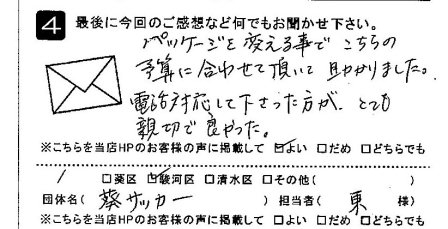 4 最後に今回のご感想など何でもお聞かせ下さい。
パッケージを変える事でこちらの
予算に合わせて頂いて助かりました。
電話対応して下さった方が、とても
親切で良かった。
※こちらを当店HPのお客様の声に掲載して ☑よい □だめ □どちらでも
□葵区 ☑駿河区 □清水区 □その他( )
団体名( 葵サッカー ) 担当者( 東 様)
※こちらを当店HPのお客様の声に掲載して □よい □だめ □どちらでも